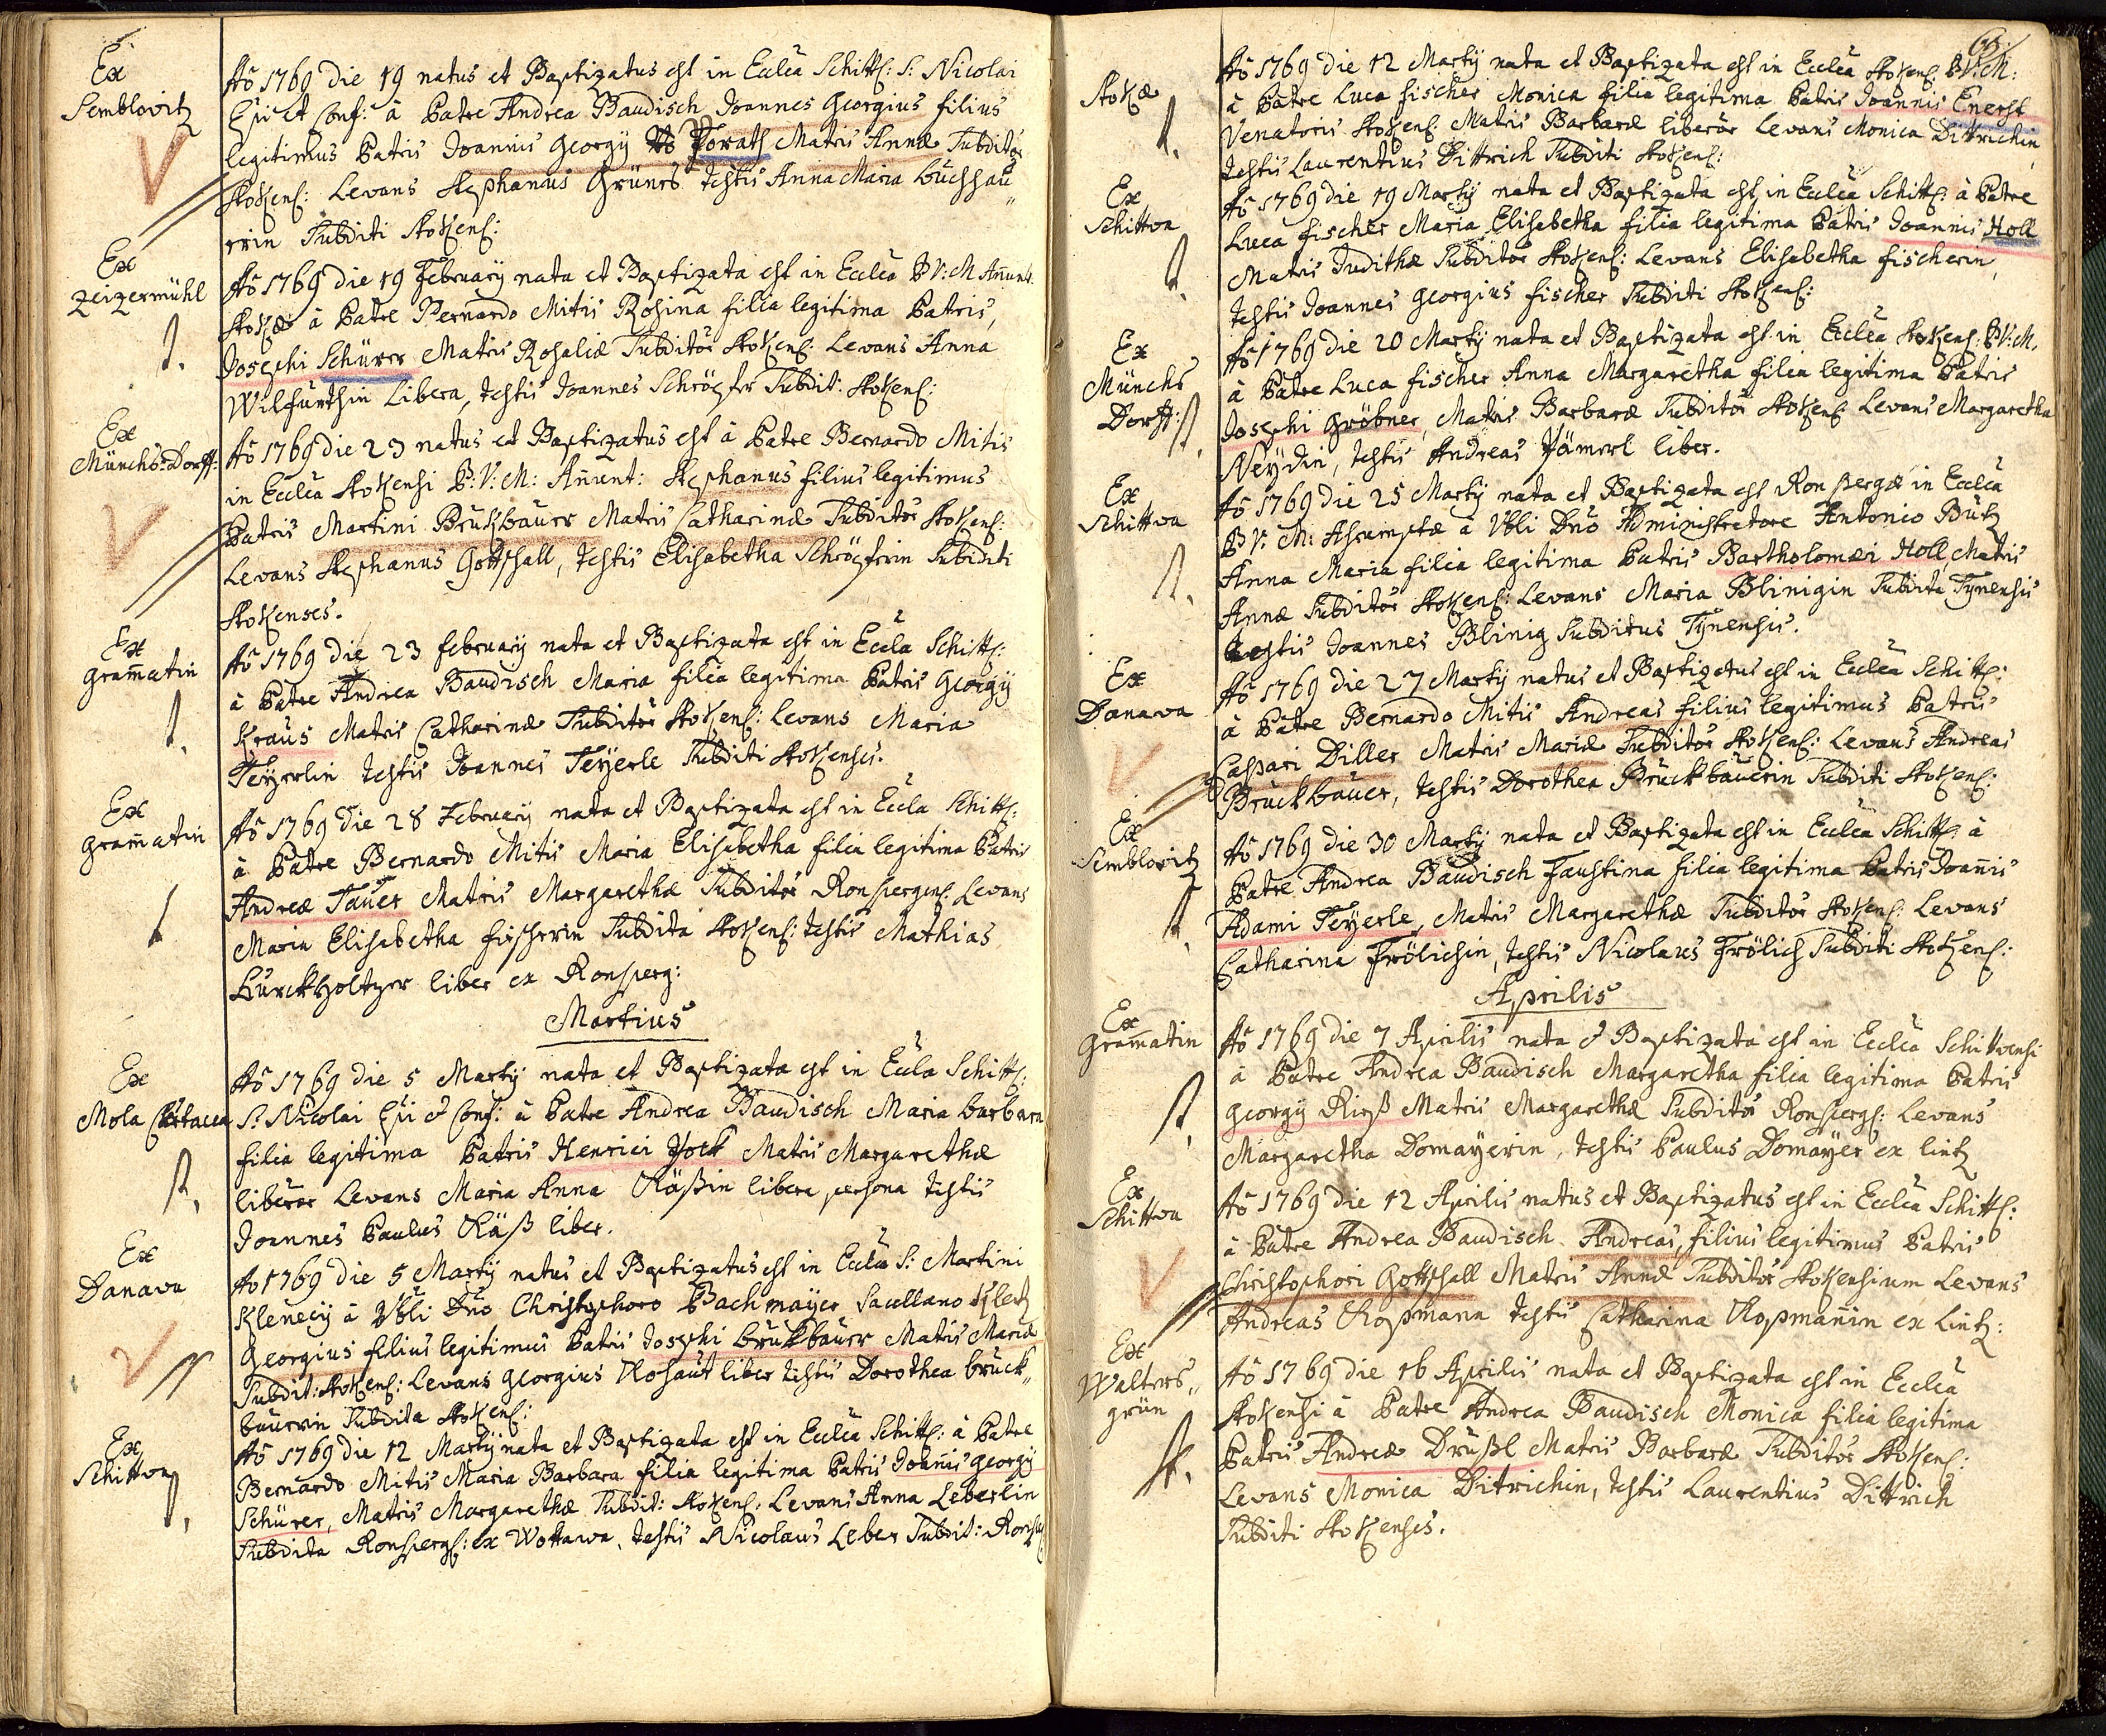 Ex
Semblovitz
Aõ 1769 die 19 natus et Baptizatus est in Ecclea Schittſ: S: Nicolai
Epi et Conf: à Patre Andrea Baudisch Joannes Georgius filius
legitimus Patris Joannis Georgy Horath Matris Annæ Subditor
Stokenſ: Levans Stephanus Grüner testis Anna Maria buchhau„
erin Subditi Stokenſ:
Ex
Zeizermühl
Aõ 1769 die 19 February nata et Baptizata est in Ecclea B V: M Añunt:
Stokæ à Patre Bernardo Mitis Rosina filia legitima Patris,
Josephi Schürer Matris Rosaliæ Subditor Stokenſ: Levans Anna
Wilfurthin Libera, testis Joannes Schröpfer Subdit: Stokenſ:
Ex
Münchs-Dorff:
Aõ 1769 die 23 natus et Baptizatus est à Patre Bernardo Mitis
in Ecclea Stokensi B: V: M: Añunt: Stephanus filius legitimus
Patris Martini Brukbauer Matris Catharinæ Subditor Stokenſ:
Levans Stephanus Gottschall, testis Elisabetha Schröpferin Subditi
Stokenses.
Ex
Gram̃atin
Aõ 1769 die 23 february nata et Baptizata est in Eccla Schittſ:
à Patre Andrea Baudisch Maria filia legitima Patris Georgy
Kraus Matris Catharinæ Subditor Stokenſ: Levans Maria
Feyerlin testis Joannes Feyerle Subditi Stokenses.
Ex
Gram̃atin
Aõ 1769 die 28 February nata et Baptizata est in Eccla Schittſ:
à Patre Bernardo Mitis Maria Elisabetha filia legitima Patris
Andreæ Tauer Matris Margarethæ Subditor Ronspergenſ. Levans
Maria Elisabetha fischerin Subdita Stokenſ: testis Mathias
Kurckholtzer liber ex Ronsperg:
Martius
Ex
Mola Cartacea
Aõ 1769 die 5 Marty nata et Baptizata est in Eccla Schittſ:
S: Nicolai Epi & Conf: à Patre Andrea Baudisch Maria barbara
filia legitima Patris Henrici Hock Matris Margarethæ
liberor Levans Maria Anna Räßin libera persona testis
Joannes Paulus Räß liber.
Ex
Danava
Ao 1769 die 5 Marty natus et Baptizatus est in Ecclea S: Martini
Klenecÿ à Vbli Dño Christophoro Bachmayer Sacellano
Georgius filius legitimus Patris Josephi bruckbauer Matris Mariæ
Subdit: Stokenſ: Levans Georgius Kohaut liber testis Dorothea bruck„
bauerin Subdita Stokenſ:
Ex
Schittva
Aõ 1769 die 12 Marty nata et Baptizata est in Ecclea Schittſ: à Patre
Bernardo Mitis Maria Barbara filia legitima Patris Joañis Georgy
Schürer, Matris Margarethæ Subdit: Stokenſ. Levans Anna Leberlin
Subdita Ronspergſ: ex Wottawa, testis Nicolaus Leber Subdit: Ronsp
Stokæ
Aõ 1769 die 12 Marty nata et Baptizata est in Ecclea Stokenſ: B V: M:
à Patre Luca fischer Monica filia legitima Patris Joannis Enerst
Venatoris Stokenſ. Matris Barbaræ liberor Levans Monica Dittrichin
testis Laurentius Dittrich Subditi Stokenſ:
Ex
Schittva
Aõ 1769 die 19 Marty nata et Baptizata est in Ecclea Schittſ: à Patre
Luca fischer Maria Elisabetha filia legitima Patris Joannis Holl
Matris Judithæ Subditor Stokenſ: Levans Elisabetha fischerin,
testis Joannes Georgius fischer Subditi Stokenſ:
Ex
Münchs
Dorff:
Aõ 1769 die 20 Marty nata et Baptizata est in Ecclea Stokenſ: B V: M,
à Patre Luca fischer Anna Margaretha filia legitima Patris
Josephi Gröbner, Matris Barbaræ Subditor Stokenſ Levans Margaretha
Neydin, testis Andreas Hämerl liber.
Ex
Schittva
Aõ 1769 die 25 Marty nata et Baptizata est Ronspergæ in Ecclea
B V: M: Assumptæ à Vbli Dño Administratore Antonio Bütz
Anna Maria filia legitima Patris Bartholomæi Holl, Matris
Annæ Subditor Stokenſ: Levans Maria Blinigin Subdita Tynensis
testis Joannes Blinig Subditus Tynensis.
Ex
Danava
Aõ 1769 die 27 Marty natus et Baptizatus est in Ecclea Schittſ:
à Patre Bernardo Mitis Andreas filius legitimus Patris
Caspari Diller Matris Mariæ Subditor Stokenſ: Levans Andreas
Bruckbauer, testis Dorothea Bruckbauerin Subditi Stokenſ:
Ex
Semblovitz
Aõ 1769 die 30 Marty nata et Baptizata est in Ecclea Schittſ: à
Patre Andrea Baudisch Faustina filia legitima Patris Joañis
Adami Feyerle, Matris Margarethæ Subditor Stokenſ: Levans
Catharina Frölichin, testis Nicolaus Frölich Subditi Stokenſ:
Aprilis
Ex
Gram̃atin
Aõ 1769 die 7 Aprilis nata & Baptizata est in Ecclea Schittvensi
à Patre Andrea Baudisch Margaretha filia legitima Patris
Georgy Rieß Matris Margarethæ Subditor Ronspergſ: Levans
Margaretha Domayerin, testis Paulus Domayer ex lintz
Ex
Schittva
Aõ 1769 die 12 Aprilis natus et Baptizatus est in Ecclea Schittſ:
à Patre Andrea Baudisch Andreas, filius legitimus Patris
Christophori Gottschall Matris Annæ Subditor Stokensium Levans
Andreas Kopmann testis Catharina Kopmañin ex Lintz:
Ex
Walters„
grün
Aõ 1769 die 16 Aprilis nata et Baptizata est in Ecclea
Stokensi à Patre Andrea Baudisch Monica filia legitima
Patris Andreæ Drußl Matris Barbaræ Subditor Stokenſ:
Levans Monica Ditrichin, testis Laurentius Dittrich
Subditi Stokenses.